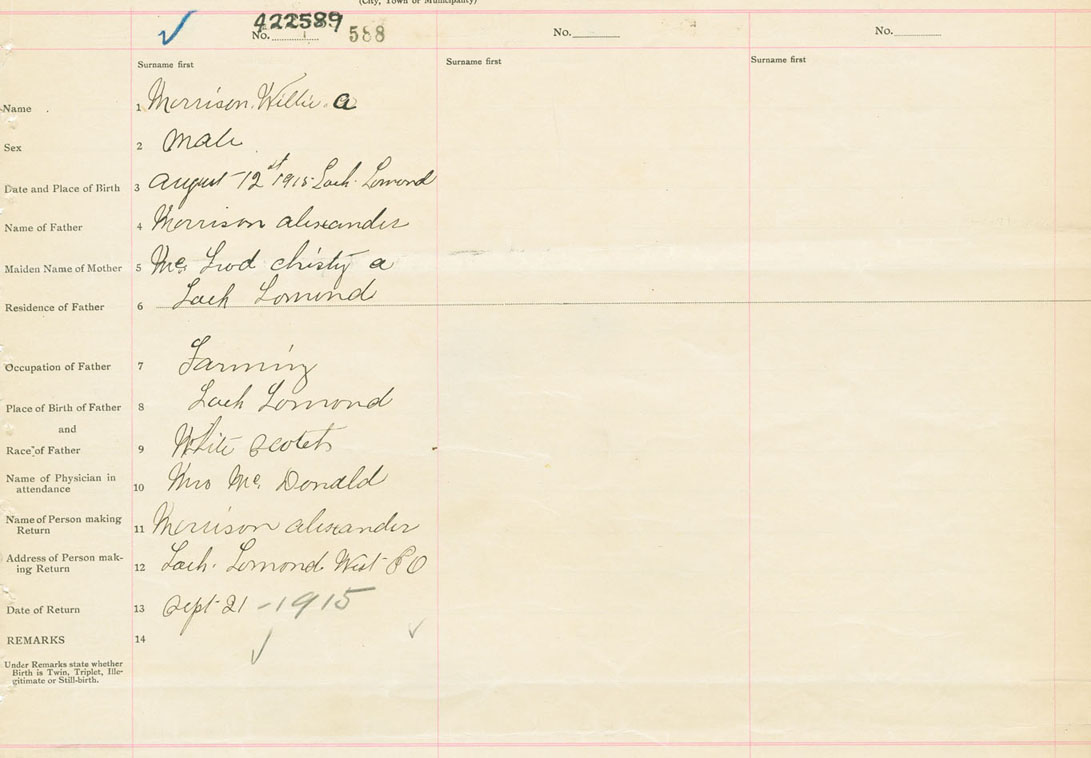 (City, Town or Municipality)
422589
No. 1 588 No. No.
Surname first Surname first Surname first
Name 1 Morrison. Willie. a
Sex 2 Male
Date and Place of Birth 3 august 12st 1915 Loch. Lomond
Name of Father 4 Morrison alexander
Maiden Name of Mother 5 Mc Lod christy a
Residence of Father 6 Loch Lomond
Occupation of Father 7 Farming
Place of Birth of Father 8 Loch Lomond
and
Race of Father 9 White scotch
Name of Physician in
attendance 10 Mrs Mc. Donald
Name of Person making
Return 11 Morrison alexander
Address of Person mak-
ing Return 12 Loch. Lomond West P O
Date of Return 13 Sept 21 - 1915
REMARKS 14
Under Remarks state whether
Birth is Twin, Triplet, Ille-
gitimate or Still-birth.